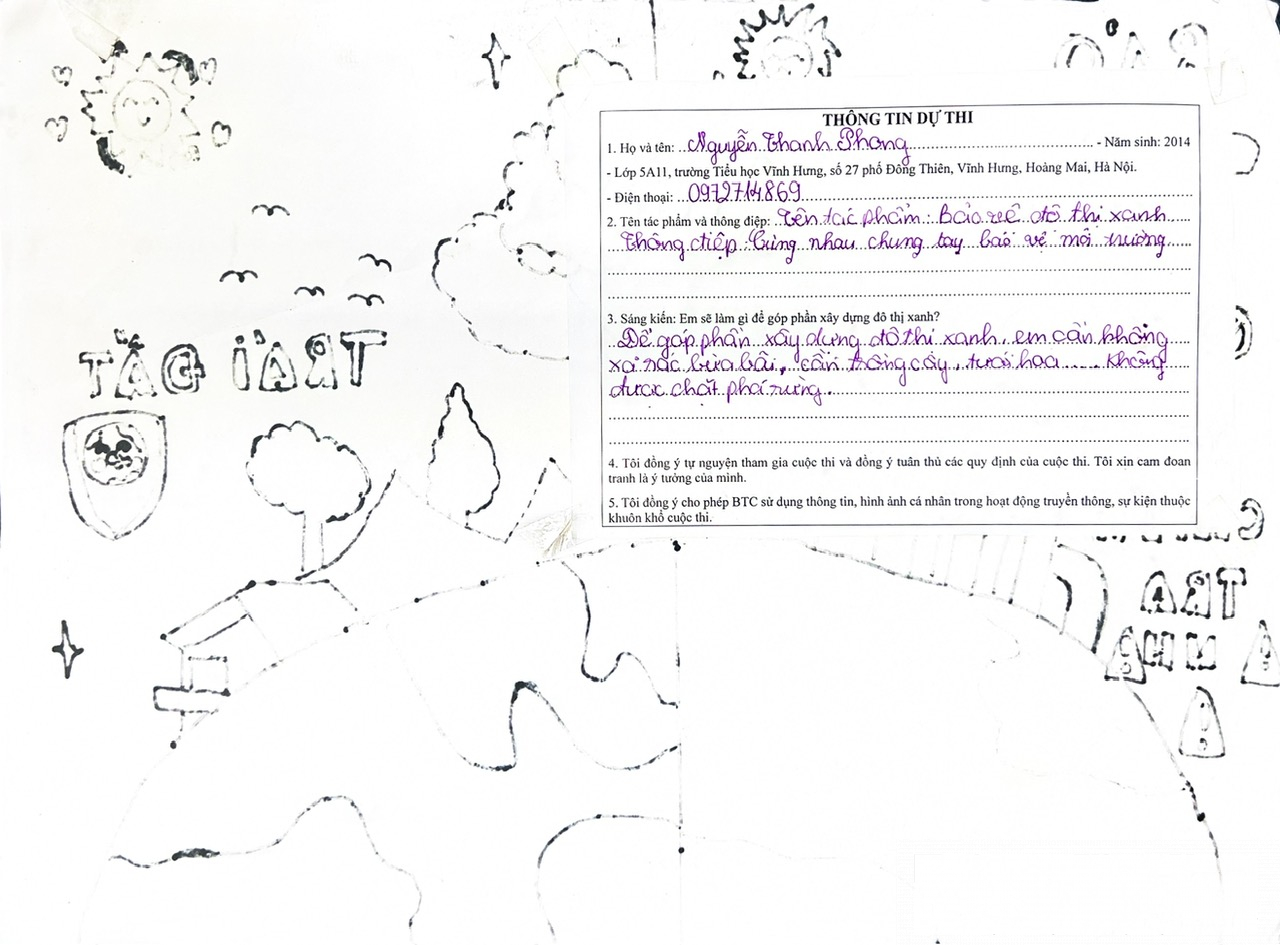 THÔNG TIN DỰ THI
1. Họ và tên: Nguyễn Thanh Phong - Năm sinh: 2014
- Lớp 5A11, trường Tiểu học Vĩnh Hưng, số 27 phố Đông Thiên, Vĩnh Hưng, Hoàng Mai, Hà Nội.
- Điện thoại: 0972714869
2. Tên tác phẩm và thông điệp: Tên tác phẩm: Bảo vệ đô thị xanh
Thông điệp: Cùng nhau chung tay bảo vệ môi trường
3. Sáng kiến: Em sẽ làm gì để góp phần xây dựng đô thị xanh?
Để góp phần xây dựng đô thị xanh, em cần không
xả rác bừa bãi, cần trồng cây, tưới hoa ..... Không
được chặt phá rừng.
4. Tôi đồng ý tự nguyện tham gia cuộc thi và đồng ý tuân thủ các quy định của cuộc thi. Tôi xin cam đoan
tranh là ý tưởng của mình.
5. Tôi đồng ý cho phép BTC sử dụng thông tin, hình ảnh cá nhân trong hoạt động truyền thông, sự kiện thuộc
khuôn khổ cuộc thi.
TRÁI ĐẤT